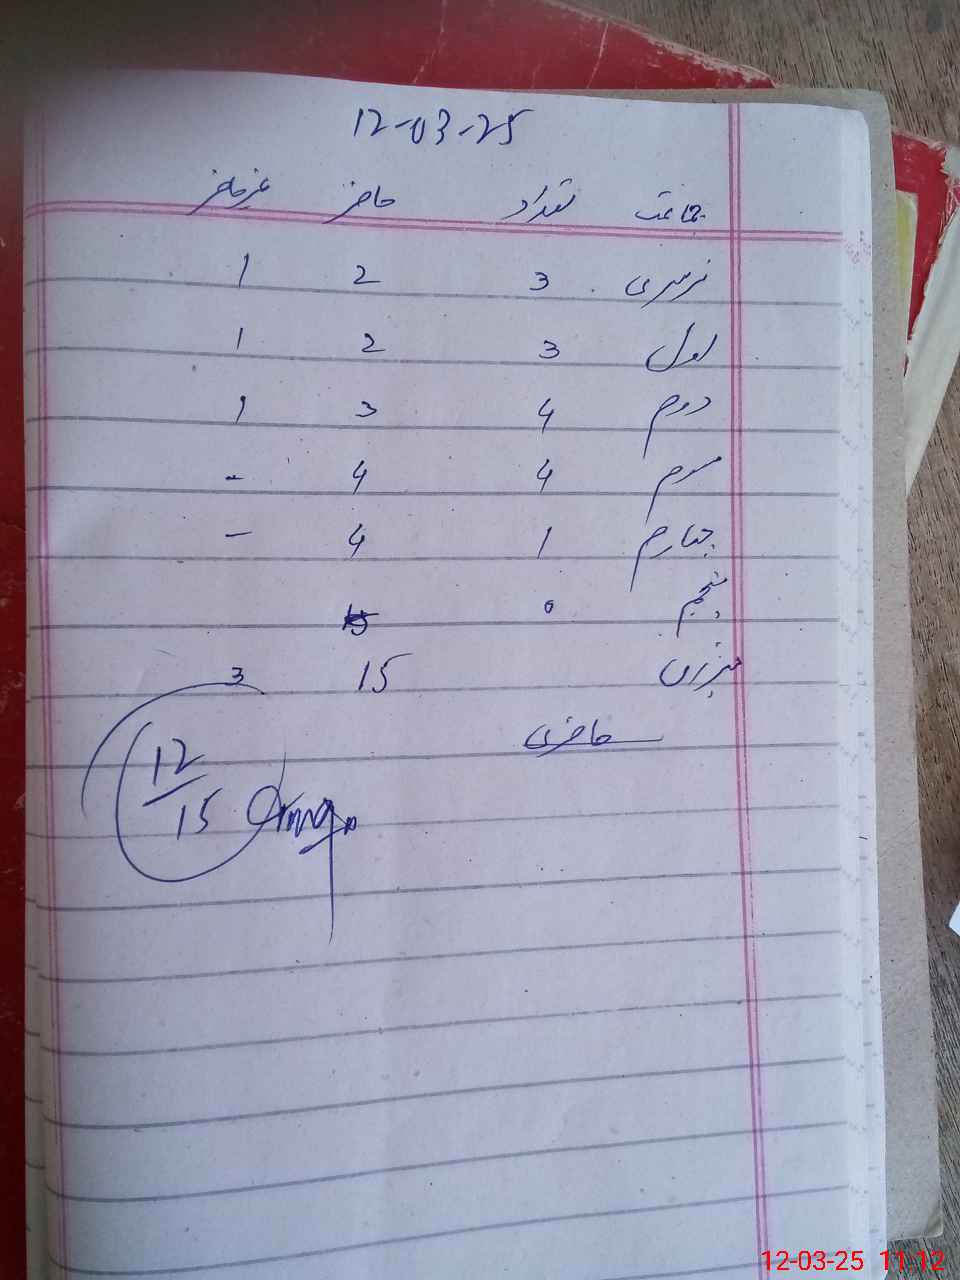 12-03-25
جماعت تعداد حاضر غیرحاضر
نرسری 3 2 1
اول 3 2 1
دوم 4 3 1
سوم 4 4 -
چہارم 1 4 -
پنجم 0
میزان 15 3
حاضری
12
15
12-03-25 11-12